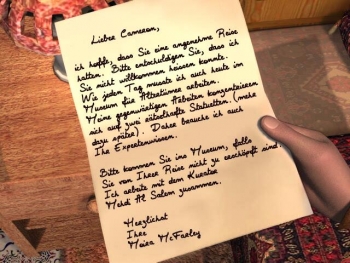 Lieber Cameron,
ich hoffe, dass Sie eine angenehme Reise
hatten. Bitte entschuldigen Sie, dass ich
Sie nicht willkommen heissen konnte.
Wie jeden Tag musste ich auch heute im
Museum für Altertümer arbeiten.
Meine gegenwärtigen Arbeiten konzentrieren
sich auf zwei rätselhafte Statuetten. (mehr
dazu später). Daher brauche ich auch
Ihr Expertenwissen.
Bitte kommen Sie ins Museum, falls
Sie von Ihrer Reise nicht zu erschöpft sind.
Ich arbeite mit dem Kurator
Mehdi Al Salem zusammen.
Herzlichst
Ihre
Moira McFarley